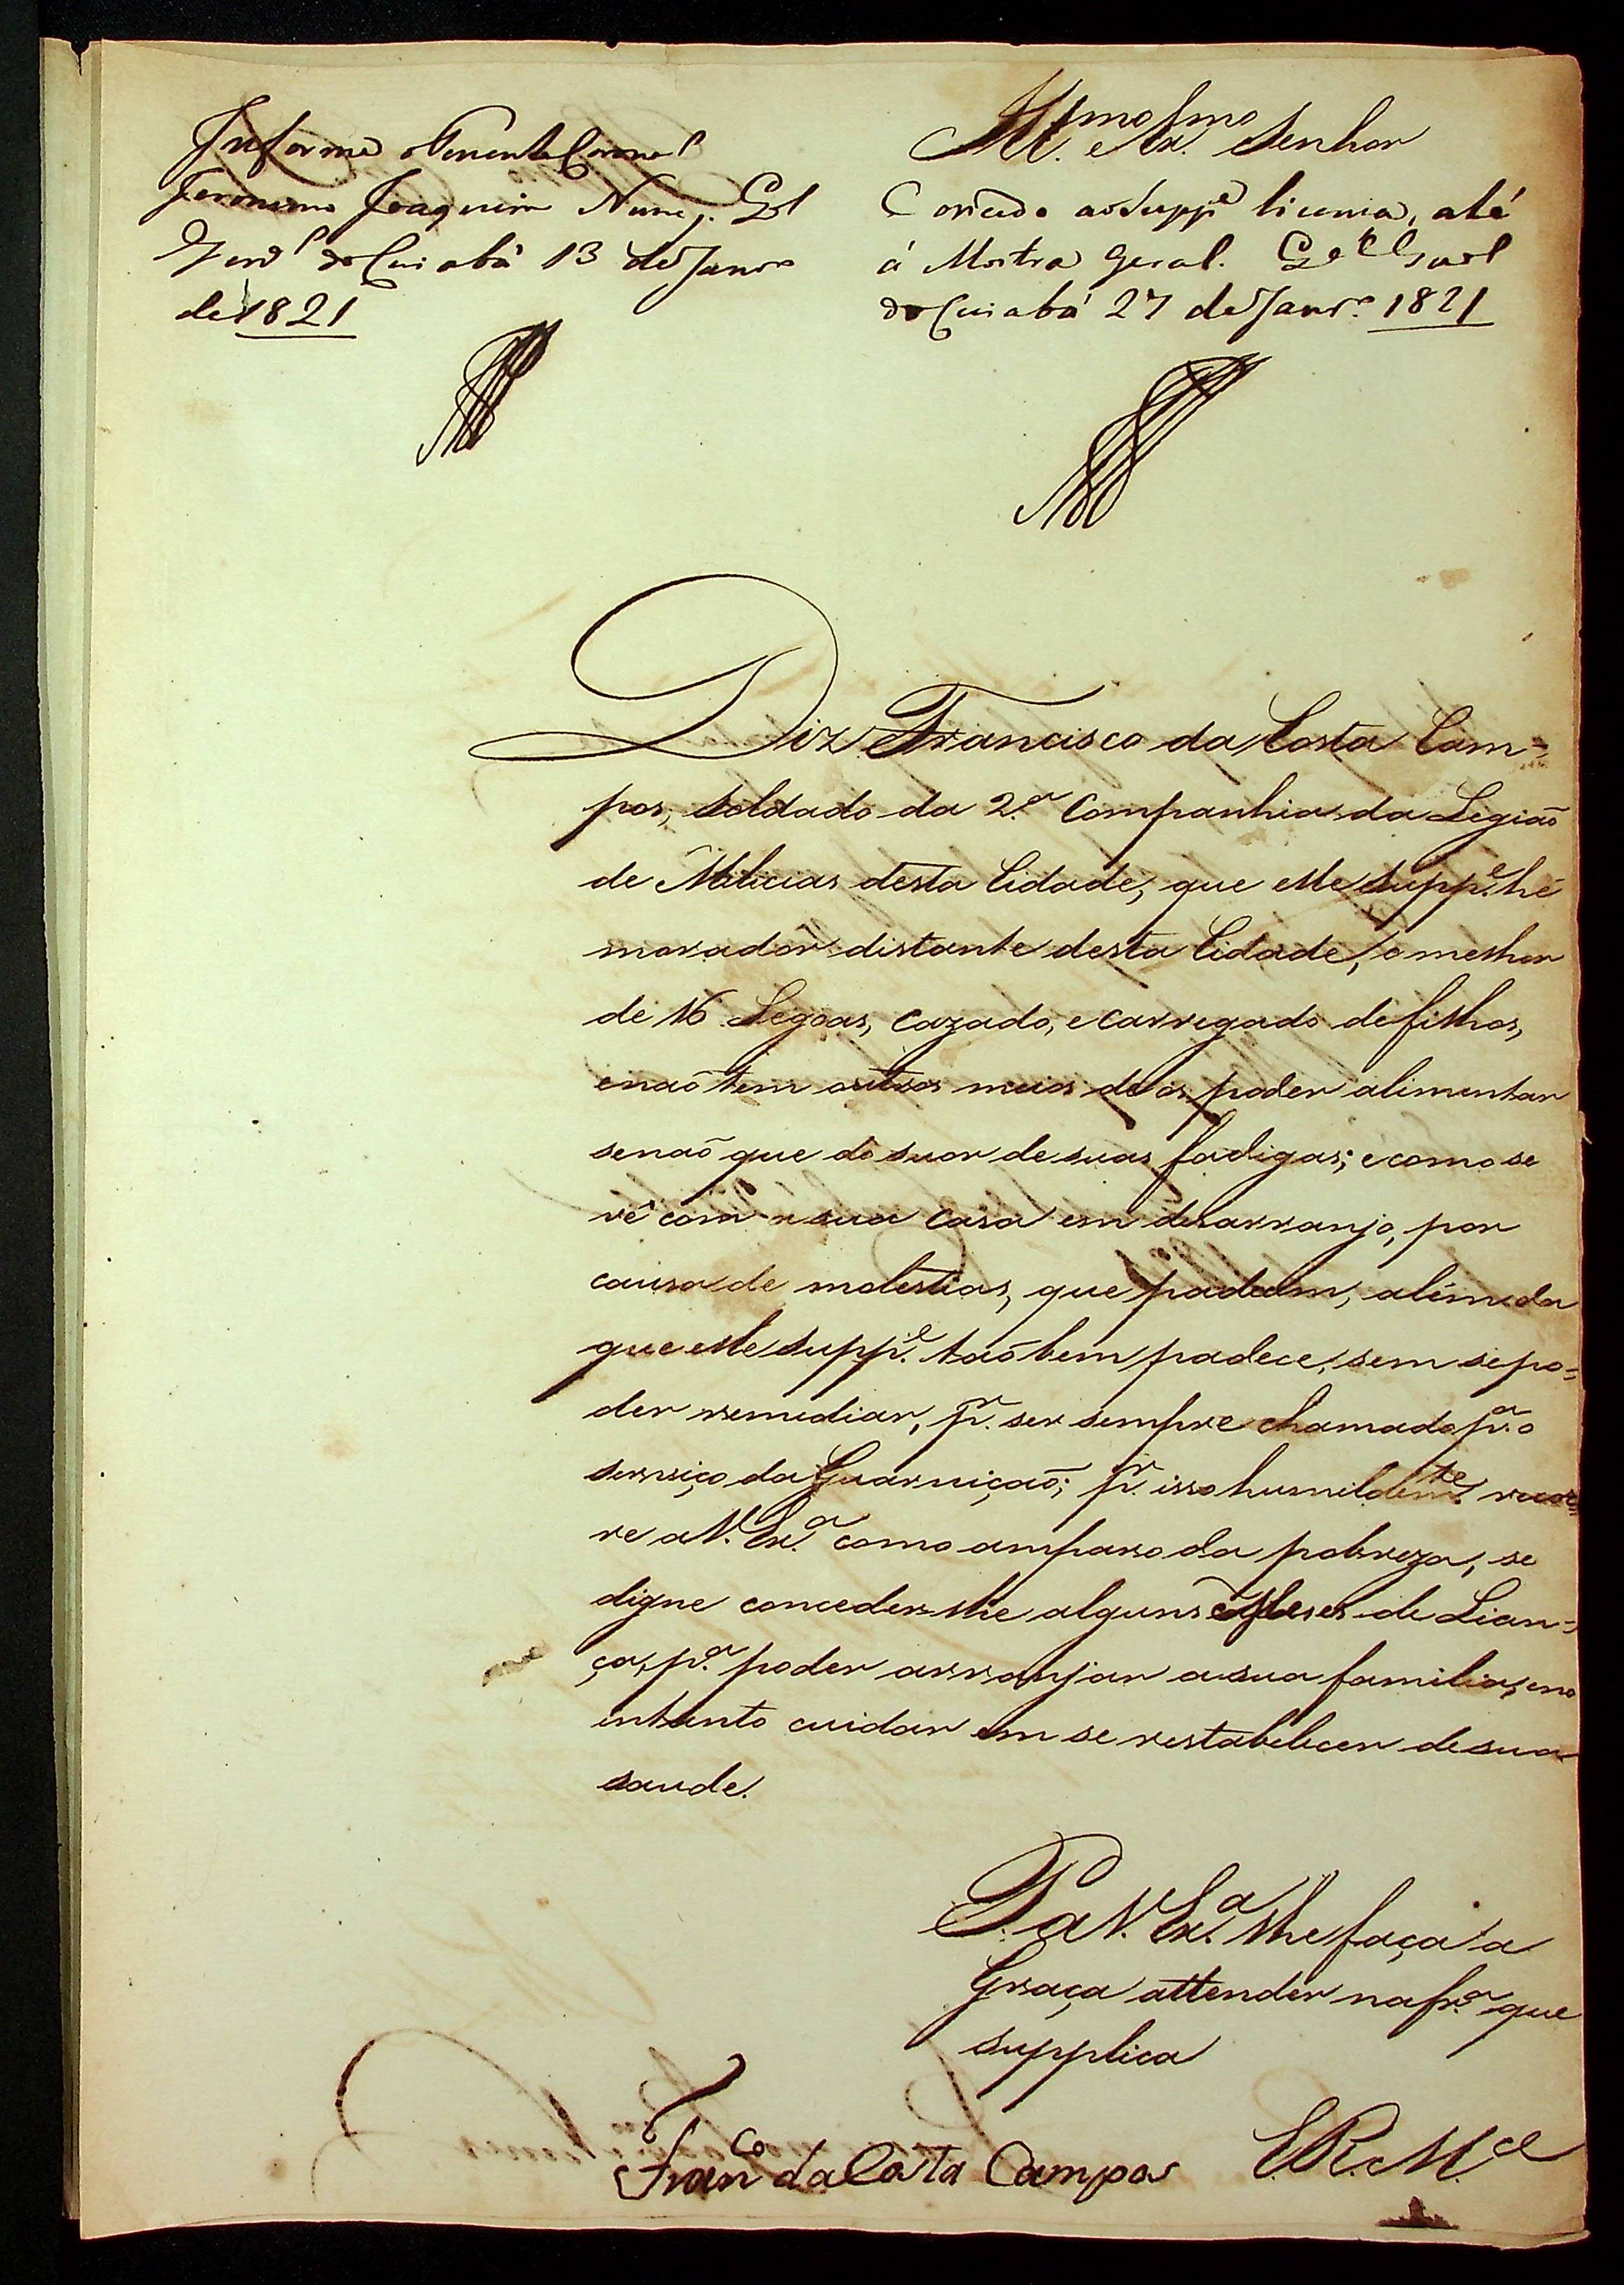 Informe o Tenente Coronel
Jeronimo Joaquim Nunes. Q.el
Ger.l do Cuiabá 13 de Janr.o
de 1821
Ill.mo e Ex.mo Senhor
Concedo ao Supp.e licença, até
á Mostra geral. Q.el Geral
do Cuiabá 27 de Janr.o 1821
Diz Francisco da Costa Cam=
pos, soldado da 2.a Companhia da Legiaõ
de Milicias desta Cidade, que elle Supp.e hé
morador distante desta Cidade, o melhor
de 16 Legoas, cazado, e carregado de filhos,
e naõ tem outros meios de os poder alimentar
senaõ que do suor de suas fadigas; e como se
vê com a sua casa em desarranjo, por
causa de molestias, que padecem, alem da
que elle Supp.e taõbem padece, sem se po=
der remediar, p.r ser sempre chamado p.a o
serviço da Guarniçaõ; p.r isso humildem.te recor=
re a V. Ex.a como amparo da pobreza, se
digne conceder-lhe alguns Meses de Licen=
ça, p.a poder arranjar a sua familia, e no
intanto cuidar em se restabelecer de sua
saude.
P. a V. Ex.a lhe faça a
Graça attender na fr.a que
supplica
E. R. M.ce
Fran.co da Costa Campos